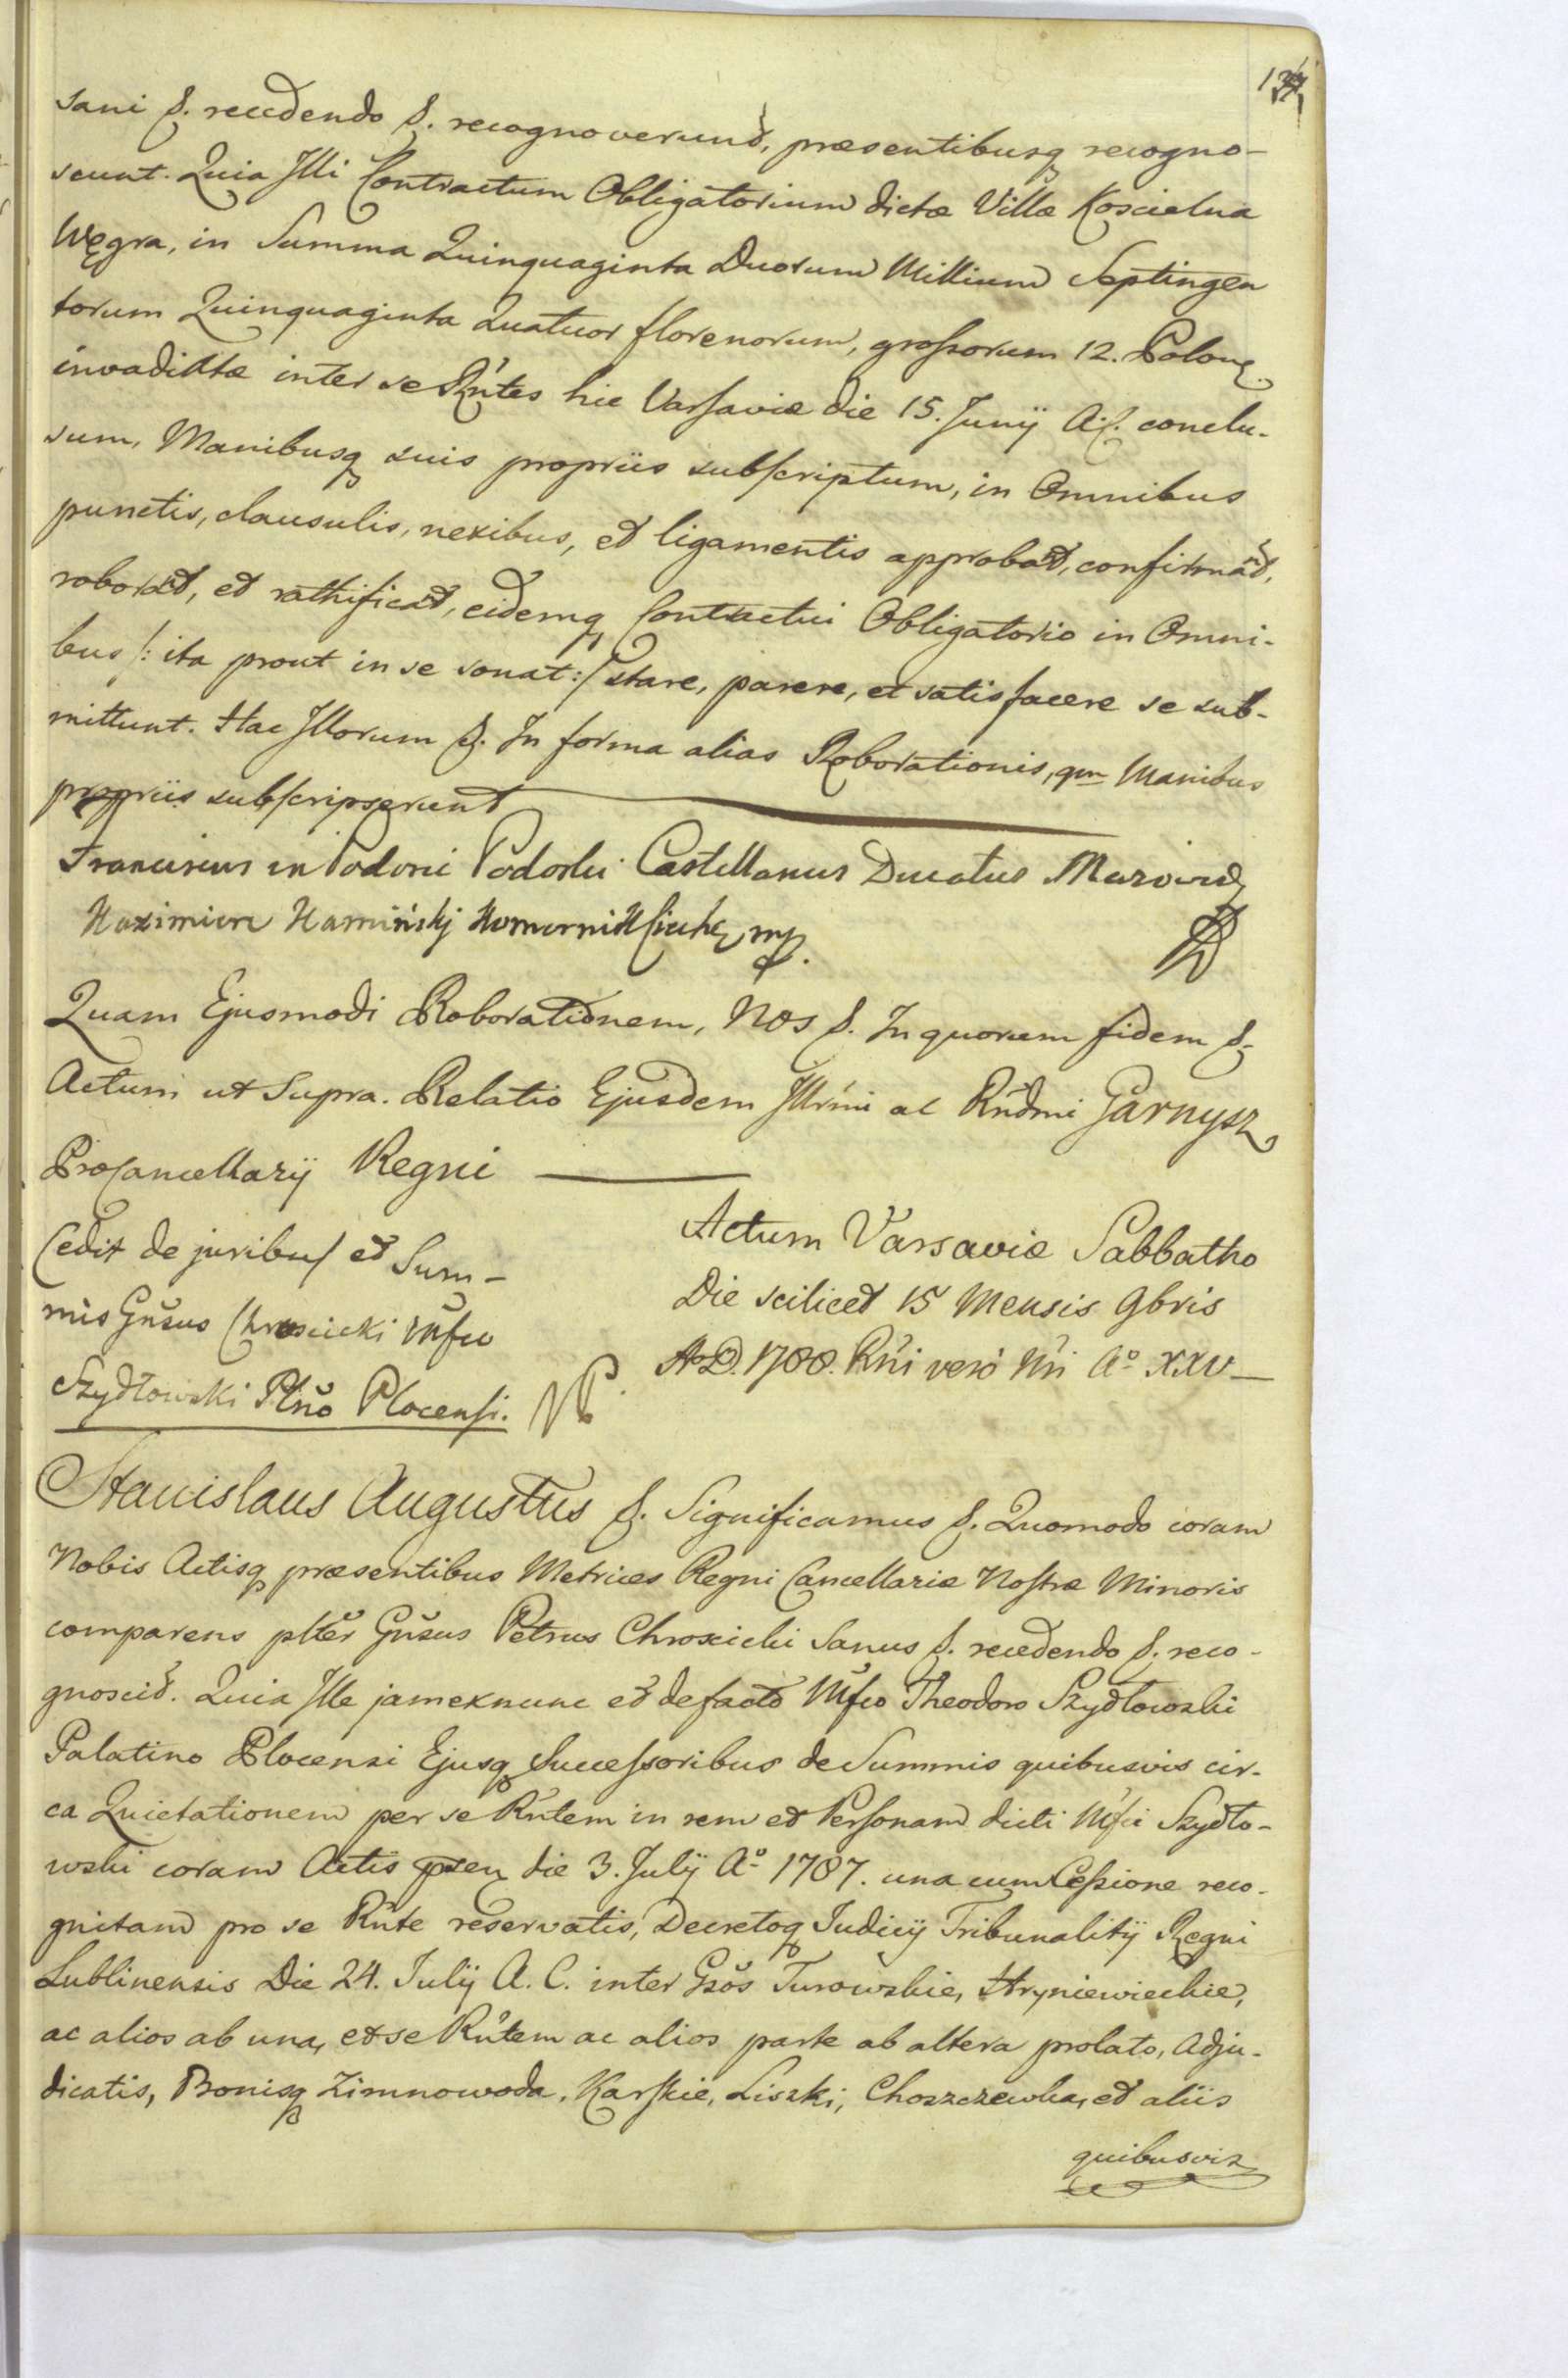 sani &. recedendo &. recognoverunt, præsentibusq recogno-
scunt. Quia Illi Contractum Obligatorium dictæ Villæ Koscielna
Węgra, in Summa Quinquaginta Duorum Millium Septingen
torum Quinquaginta Quatuor florenorum, grossorum 12. Polon.
invadiatæ inter se Rn̄tes hic Varsaviæ die 15. Junij A. C. conclu-
sum, Manibusq suis propriis subscriptum, in Omnibus
punctis, clausulis, nexibus, et ligamentis approbant, confirmant,
roborant, et rathificant, eidemq Contractui Obligatorio in Omni-
bus /: ita prout in se sonat :/ stare, parere, et satisfacere se sub-
mittunt. Hac Illorum &. In forma alias Roborationis, qm Manibus
propriis subscripserunt
Franciscus in Podorii Podoski Castellanus Ducatus Mazoviæ
Kazimierz Kamiński Komornik Ciech. mp.
Quam Ejusmodi Roborationem, Nos &. In quorum fidem &.
Actum ut Supra. Relatio Ejusdem Illr̄mi ac Rn̄dmi Garnysz
ProCancellarij Regni
Cedit de juribus et Sum-
mis Gn̄sus Chroscicki Mfco
Szydłowski Pln̄o Plocensi.
Actum Varsaviæ Sabbatho
Die scilicet 15 Mensis 9bris
A.D. 1788. Rn̄i vero Nr̄i Aº XXV
Stanislaus Augustus &. Significamus &. Quomodo coram
Nobis Actisq præsentibus Metrices Regni Cancellariæ Nostræ Minoris
comparens pltēr Gn̄sus Petrus Chroscicki Sanus &. recedendo &. reco-
gnoscit. Quia Ille jam exnunc et defacto Mfco Theodoro Szydłowski
Palatino Plocensi Ejusq Successoribus de Summis quibusvis cir-
ca Quietationem per se Rn̄tem in rem et Personam dicti Mfci Szydło-
wski coram Actis præn die 3. Julij Aº 1787. una cum Cessione reco-
gnitam pro se Rn̄te reservatis, Decretoq Judicij Tribunalitij Regni
Lublinensis Die 24. Julij A. C. inter Gsos Turowskie, Hryniewieckie,
ac alios ab una, et se Rn̄tem ac alios parte ab altera prolato, Adju-
dicatis, Bonisq Zimnowoda, Karskie, Liszki, Choszczewka, et aliis
quibusvis